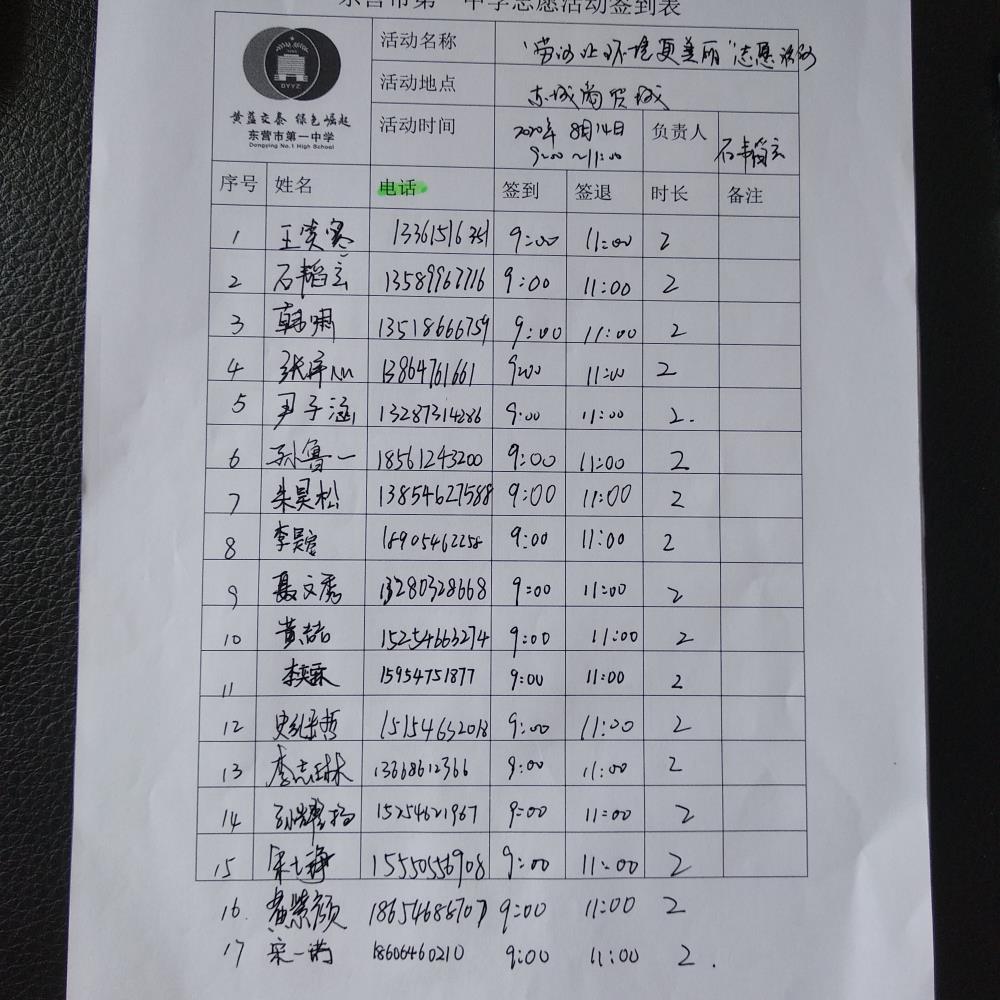 东营市第一中学志愿活动签到表
DYYZ
黄蓝交奏 绿色崛起
东营市第一中学
Dongying No.1 High School
活动名称 "劳动让环境更美丽"志愿活动
活动地点 东城商贸城
活动时间 2020年8月14日 负责人 石韬玄
9:00~11:00
序号 姓名 电话 签到 签退 时长 备注
1 王奕寒 13361516351 9:00 11:00 2
2 石韬玄 13589967716 9:00 11:00 2
3 韩啸 13518666759 9:00 11:00 2
4 13864761661 9:00 11:00 2
5 尹子涵 13287314286 9:00 11:00 2.
6 孙鲁一 18561243200 9:00 11:00 2
7 朱昊松 13854627588 9:00 11:00 2
8 18905462258 9:00 11:00 2
9 聂文秀 13280328668 9:00 11:00 2
10 黄喆 15254663274 9:00 11:00 2
11 李奕霖 15954751877 9:00 11:00 2
12 15154632018 9:00 11:00 2
13 李志琳 13668612366 9:00 11:00 2
14 孙耀扬 15254621967 9:00 11:00 2
15 15550556908 9:00 11:00 2
16. 黄紫颜 18654686707 9:00 11:00 2
17 宋一诺 18606460210 9:00 11:00 2.